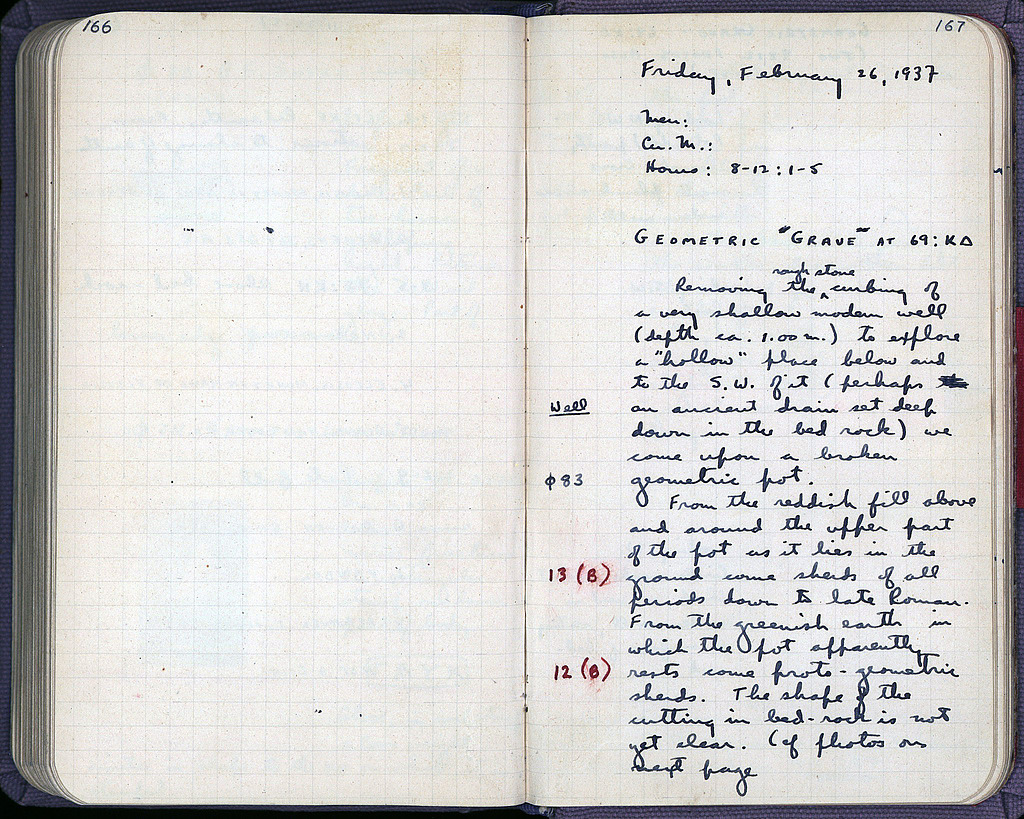 166
167
Friday, February 26, 1937
Men:
Cu. M.:
Hours: 8-12: 1-5
GEOMETRIC "GRAVE" AT 69: ΚΔ
rough stone
Removing the ^ curbing of
a very shallow modern well
(depth ca. 1.00 m.) to explore
a "hollow" place below and
to the S.W. of it (perhaps
Well
an ancient drain set deep
down in the bed rock) we
come upon a broken
φ83
geometric pot.
From the reddish fill above
and around the upper part
of the pot as it lies in the
13 (B)
ground come sherds of all
periods down to late Roman.
From the greenish earth in
which the pot apparently
12 (B)
rests come proto-geometric
sherds. The shape of the
cutting in bed-rock is not
yet clear. (cf photos on
next page